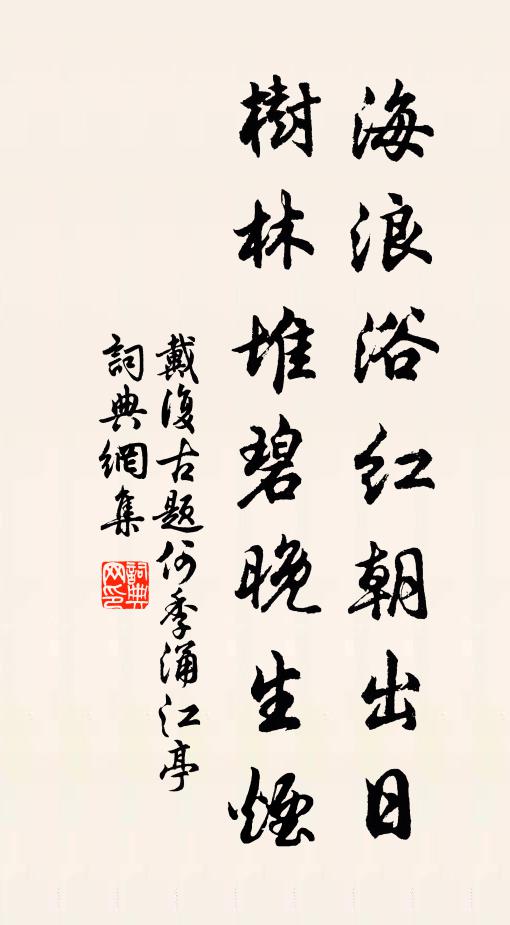 海浪浴红朝出日
樹林堆碧晚生煙
戴復古題何季涌江亭
詞典網集
詞典网印